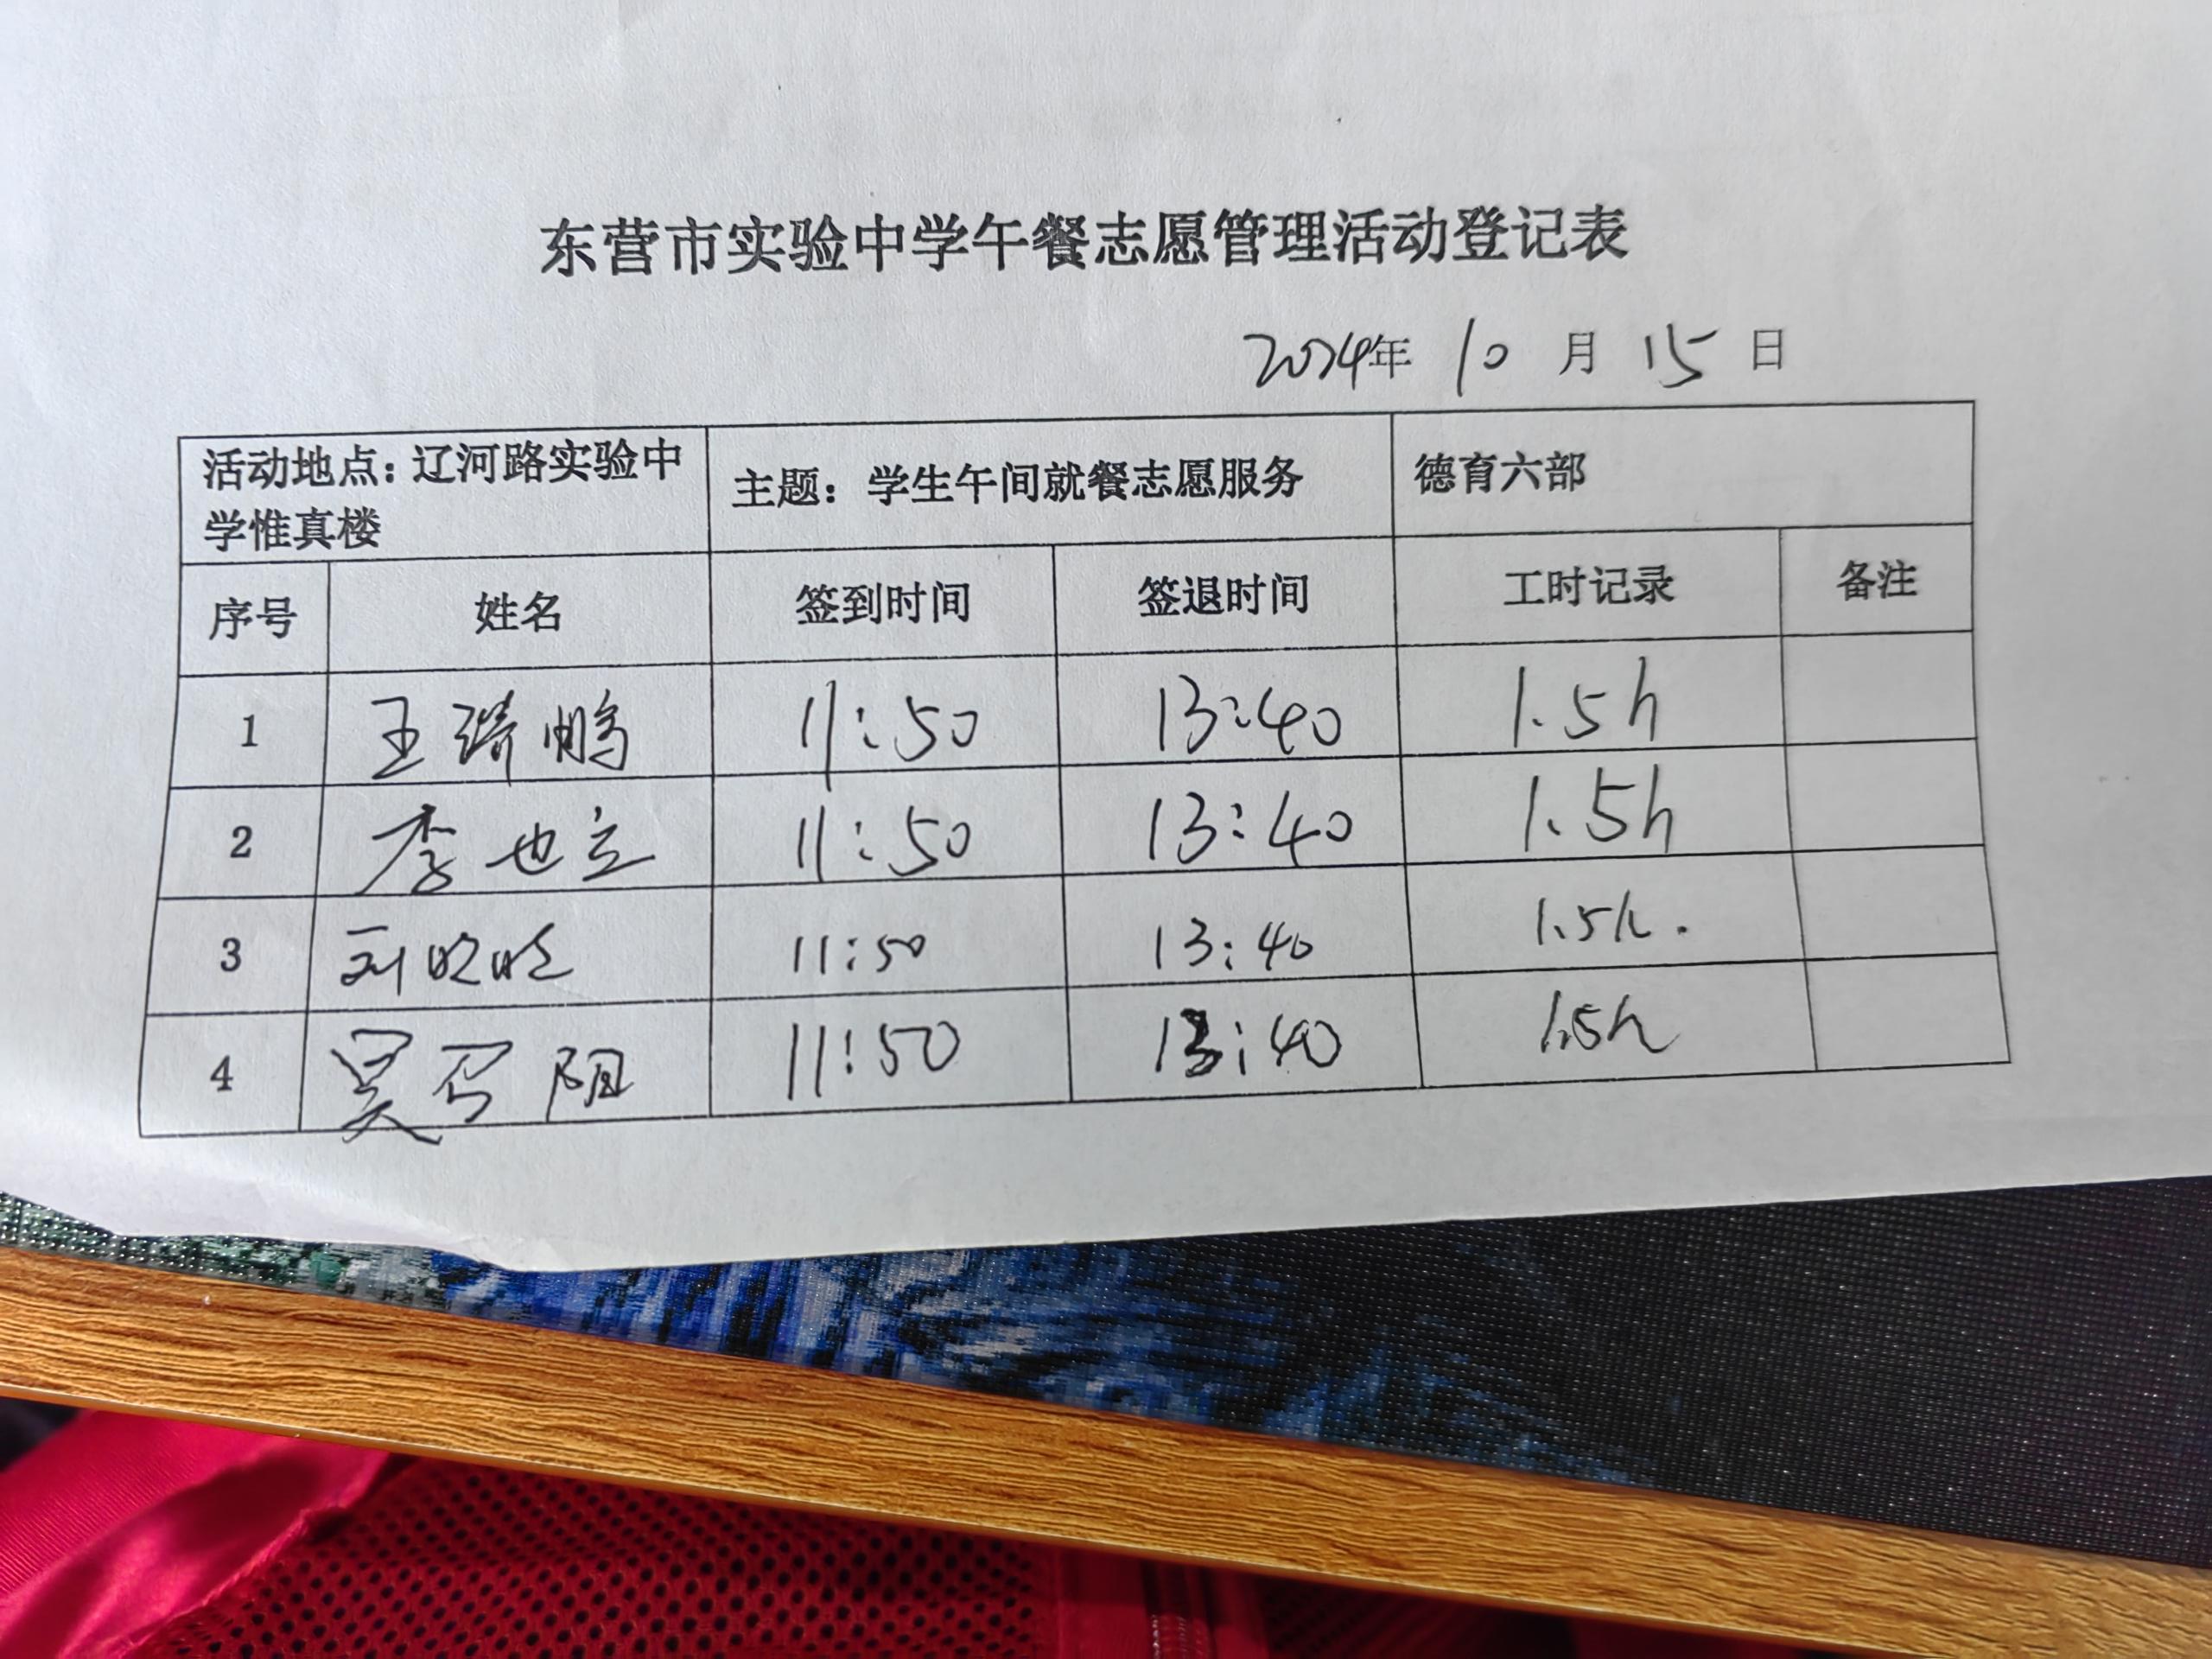 东营市实验中学午餐志愿管理活动登记表
2024年 10 月 15 日
活动地点：辽河路实验中
学惟真楼
主题：学生午间就餐志愿服务
德育六部
序号 姓名 签到时间 签退时间 工时记录 备注
1 王 鹏 11:50 13:40 1.5h
2 李也立 11:50 13:40 1.5h
3 刘 11:50 13:40 1.5h.
4 吴 阳 11:50 13:40 1.5h